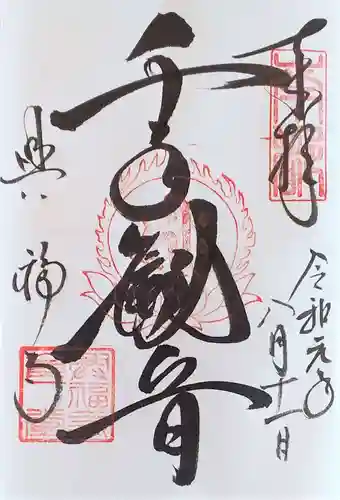 奉拝
令和元年
八月十一日
千手観音
興福寺